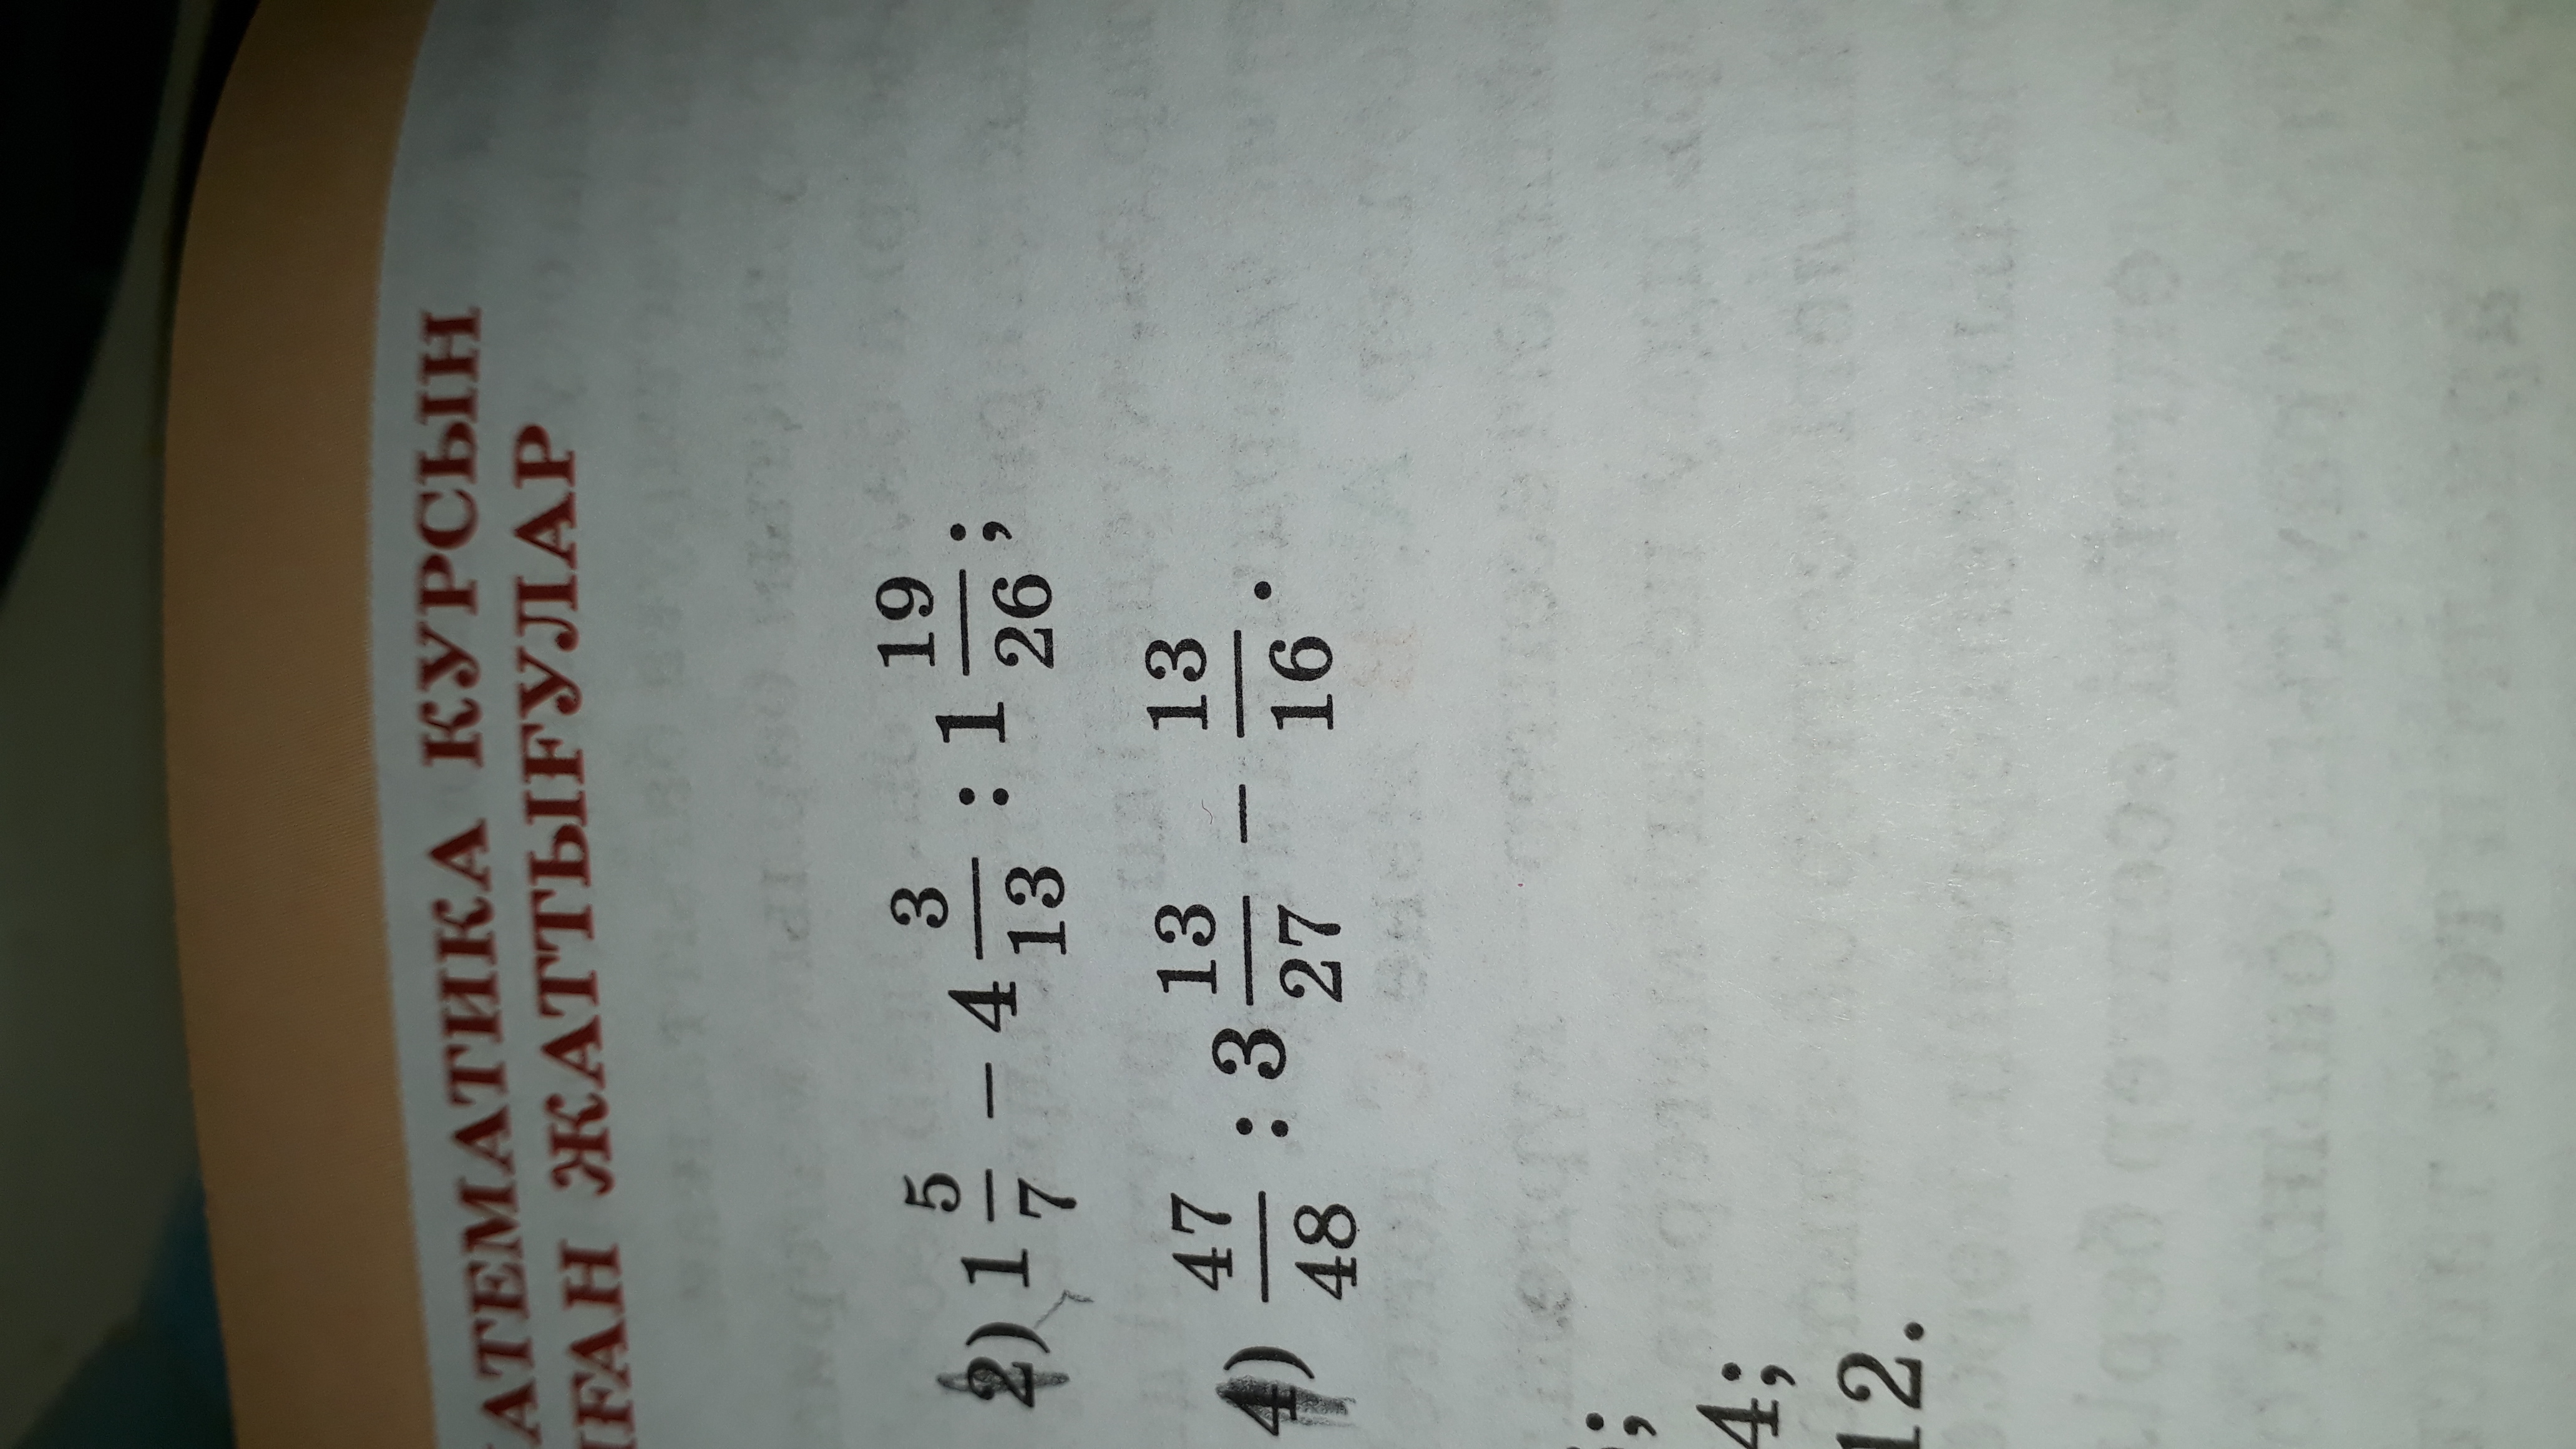 АТЕМАТИКА КУРСЫН
ҒАН ЖАТТЫҒУЛАР
2) 1 5/7 − 4 3/13 : 1 19/26;
4) 47/48 : 3 13/27 − 13/16.
;
4;
12.